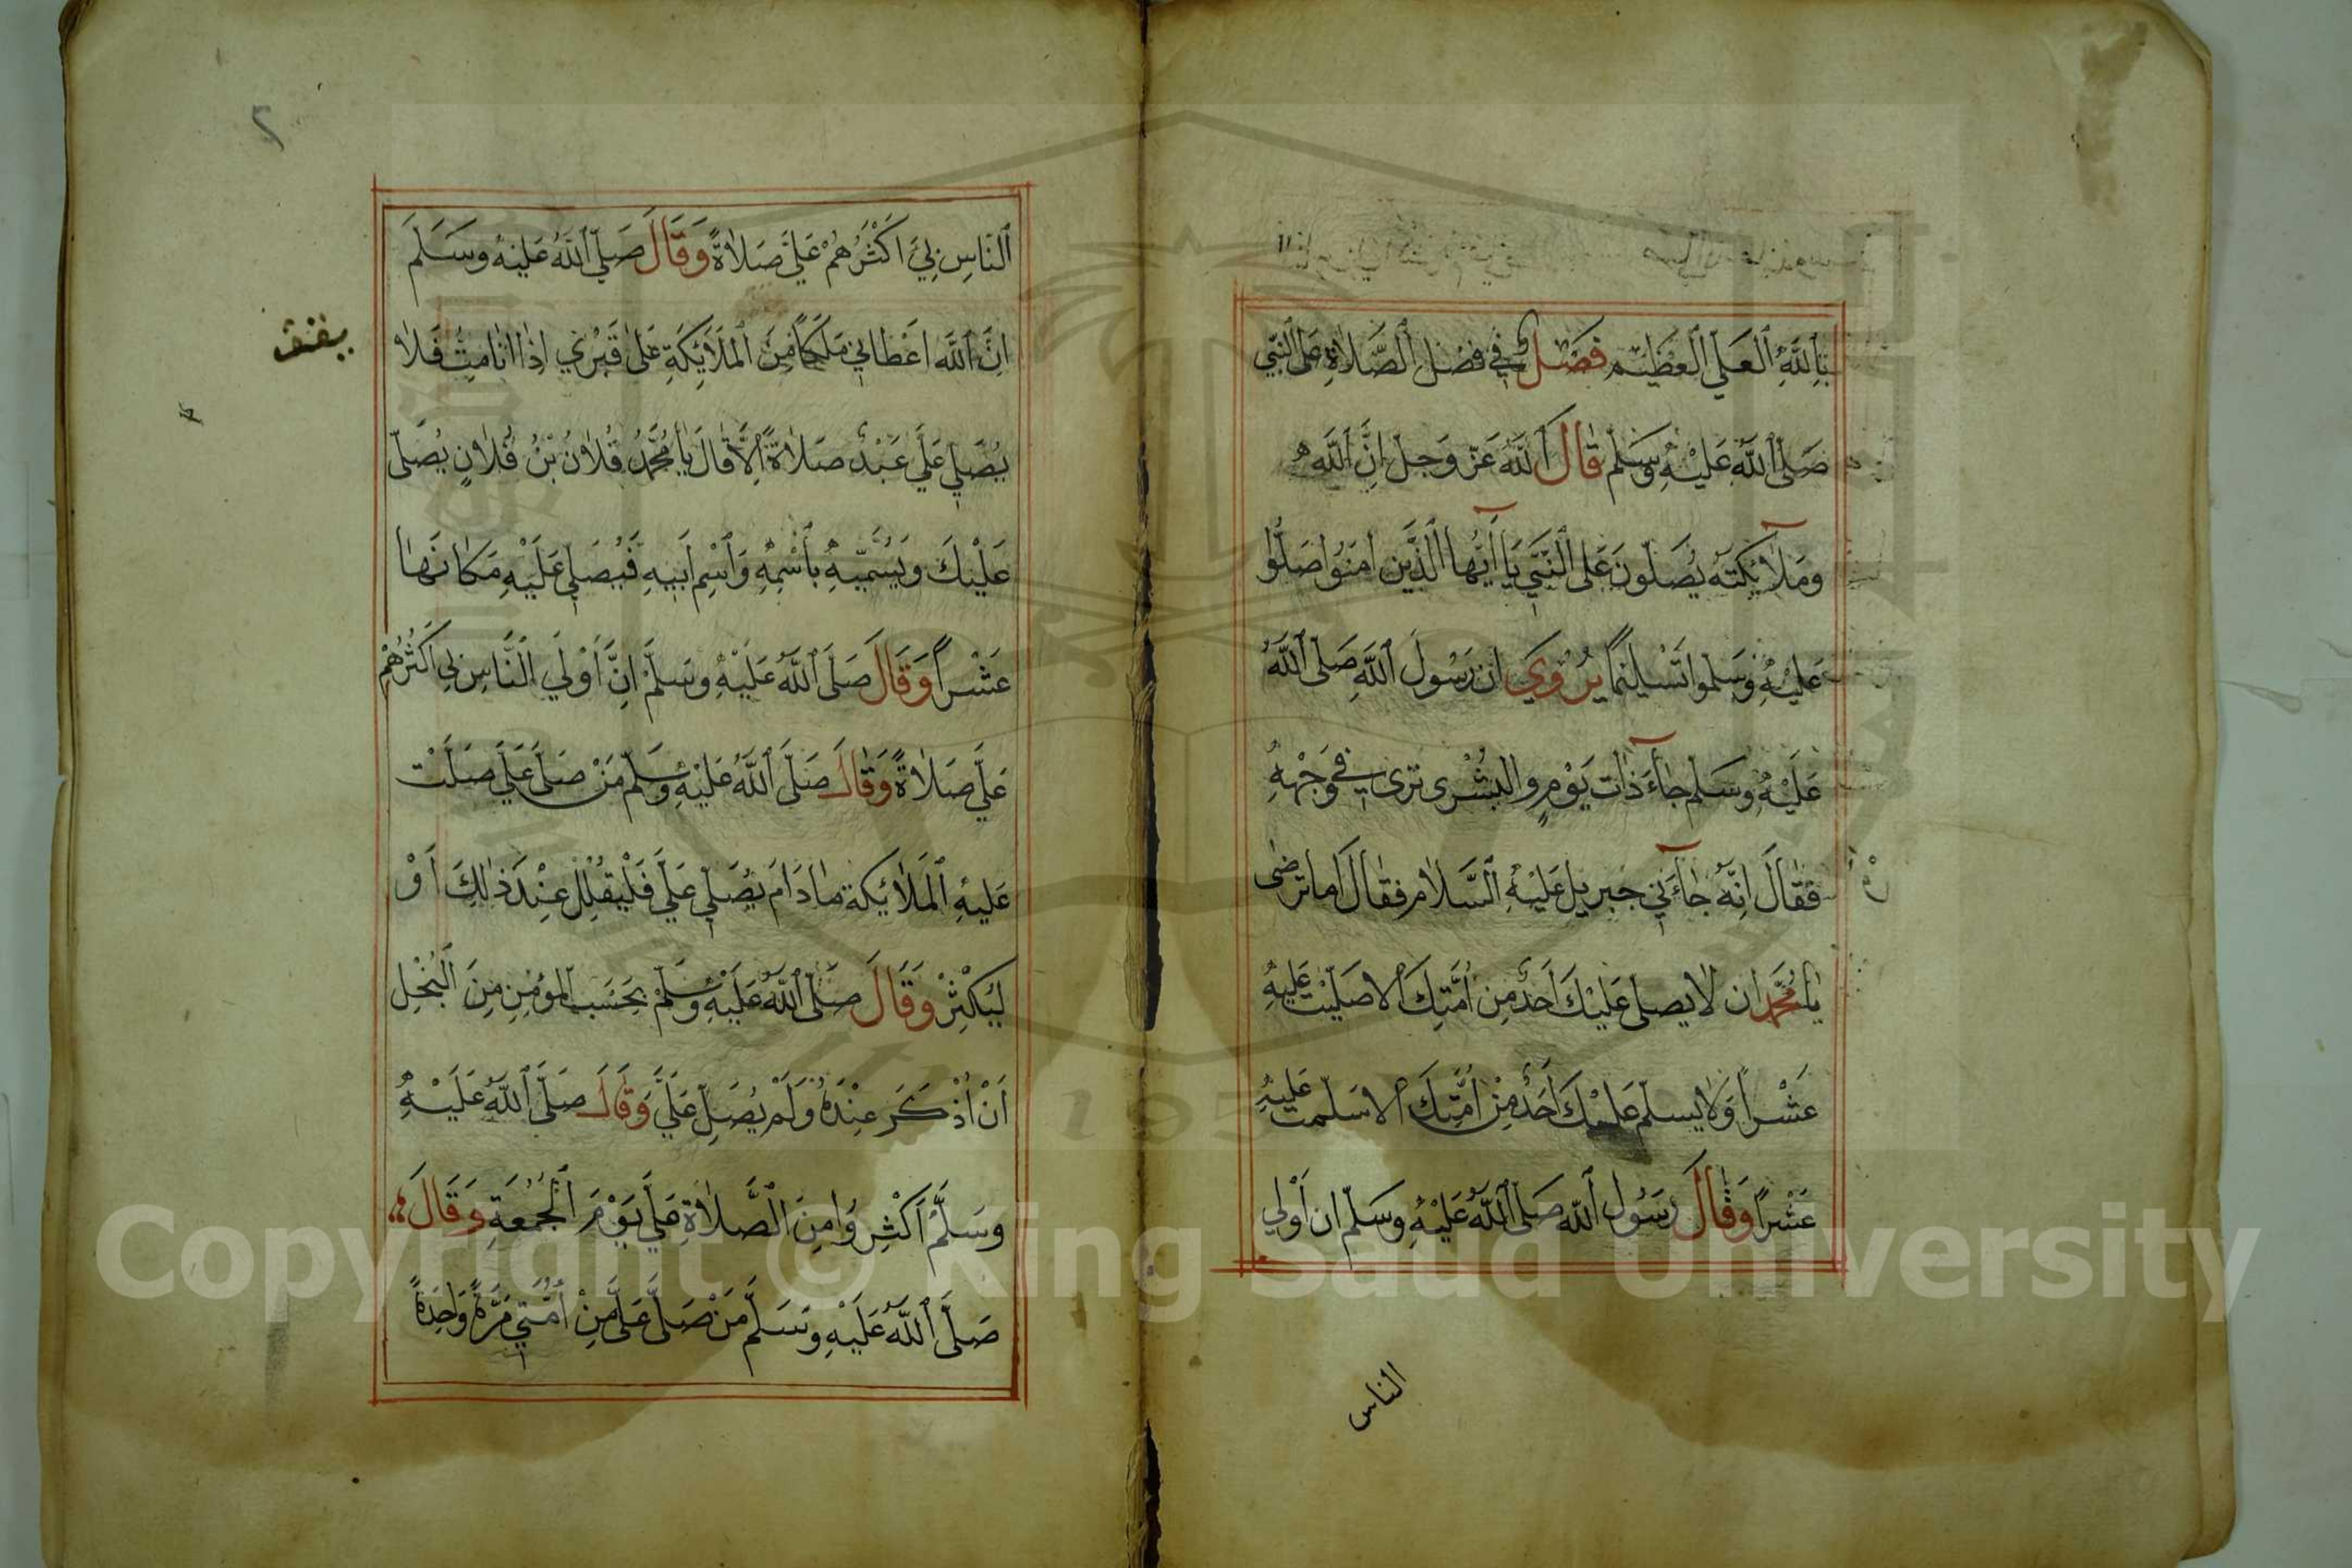 بِاللَّهِ الْعَلِيِّ الْعَظِيمِ فَصْلٌ فِي فَضْلِ الصَّلَاةِ عَلَى النَّبِيِّ
صَلَّى اللَّهُ عَلَيْهِ وَسَلَّمَ قَالَ اللَّهُ عَزَّ وَجَلَّ اِنَّ اللَّهَ
وَمَلَآئِكَتَهُ يُصَلُّونَ عَلَى النَّبِيِّ يَآ أَيُّهَا الَّذِينَ امَنُوا صَلُّوا
عَلَيْهِ وَسَلِّمُوا تَسْلِيْمًا يُرْوَي ان رَسُولَ اللَّهِ صَلَّى اللَّهُ
عَلَيْهِ وَسَلَّمَ جَآءَ ذَاتَ يَوْمٍ والبُشْرى تُرى فِي وَجْهِهِ
فَقَالَ اِنَّهُ جَآءَنِي جبريل عَلَيْهِ السَّلَام فَقَالَ اَمَا تَرْضى
يَا مُحَمَّد ان لا يصلى عَلَيْكَ اَحَدٌ مِن اُمَّتِكَ الا صَلَّيْت عَلَيْهِ
عَشْراً وَلَا يسلم عَلَيْكَ اَحَدٌ مِنْ اُمَّتِكَ الا سَلَّمت عَلَيْهِ
عَشْراً وَقَالَ رَسُول اللّه صَلَّى اللَّهُ عَلَيْهِ وَسَلَّم ان اَوْلي
الناس
٢
النَّاسِ بِيَ اَكْثَرُهُمْ عَلَيَّ صَلَاةً وَقَالَ صَلَّى اللَّهُ عَلَيْهِ وَسَلَّمَ
اِنَّ اللَّهَ اَعْطَانِي مَلَكاً مِنَ الْمَلَائِكَةِ عَلى قَبْرِي اِذَا اَنَا مِتُّ فَلَا
يُصَلِّي عَلَيَّ عَبْدٌ صَلَاةً اِلَّا قَالَ يَا مُحَمَّدُ فُلَانُ بْنُ فُلَانٍ يُصَلِّى
عَلَيْكَ وَيُسَمِّيهُ بِاسْمِهِ وَاسْمِ اَبِيهِ فَيُصَلِّي عَلَيْهِ مَكَانَهَا
عَشْراً وَقَالَ صَلَّى اللَّهُ عَلَيْهِ وَسَلَّمَ اِنَّ اَوْلَي النَّاسِ بِي اَكْثَرُهُمْ
عَلَيَّ صَلَاةً وَقَالَ صَلَّى اللَّهُ عَلَيْهِ وَسَلَّم مَنْ صَلَّى عَلَيَّ صَلَّتْ
عَلَيْهِ الْمَلَائِكَة مَا دَامَ يُصَلِّي عَلَيَّ فَلْيُقْلِلْ عِنْدَ ذَالِكَ اَوْ
لِيُكْثِرْ وَقَالَ صَلَّى اللَّهُ عَلَيْهِ وَسَلَّمْ بِحَسَبِ الْمُؤْمِنِ مِنَ الْبُخْلِ
اَنْ اُذْكَرَ عِنْدَهُ وَلَمْ يُصَلِّ عَلَيَّ وَقَالَ صَلَّى اللَّهُ عَلَيْهِ
وَسَلَّمْ اَكْثِرُوا مِنَ الصَّلَاةِ عَلَيَّ يَوْمَ الْجُمُعَةِ وَقَالَ
صَلَّى اللَّهُ عَلَيْهِ وَسَلَّمَ مَنْ صَلَّى عَلَيَّ مِنْ اُمَّتِي مَرَّةً وَاحِدَةً
Copyright © King Saud University